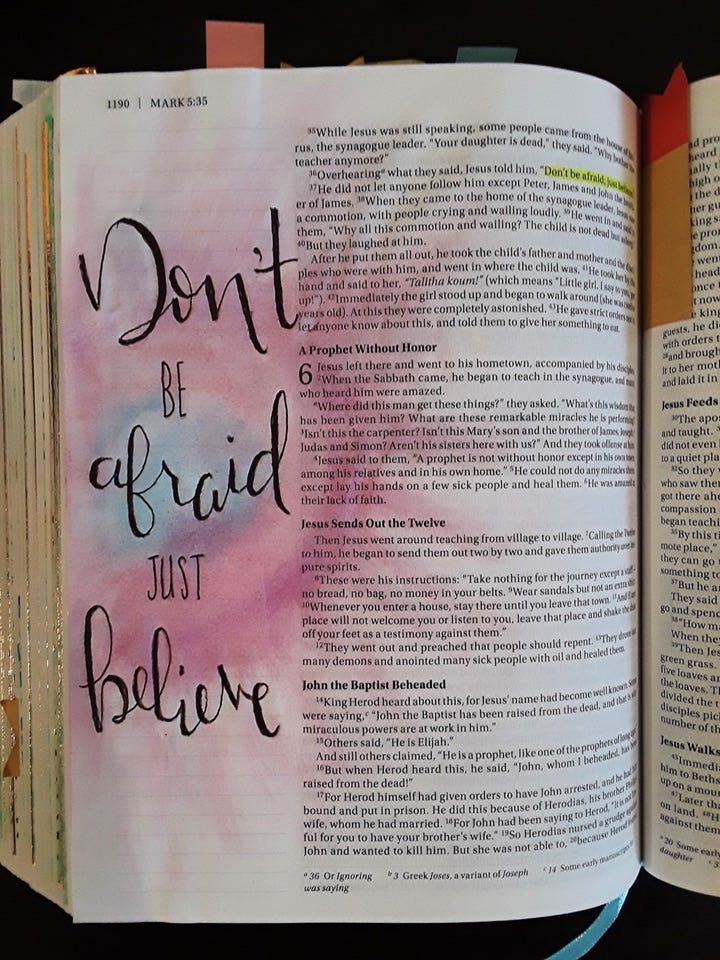 1190 | MARK 5:35
Don't
BE
afraid
JUST
believe
35While Jesus was still speaking, some people came from the house of
rus, the synagogue leader. "Your daughter is dead," they said. "Why bother the
teacher anymore?"
36Overhearinga what they said, Jesus told him, "Don't be afraid; just believe."
37He did not let anyone follow him except Peter, James and John the
er of James. 38When they came to the home of the synagogue leader, Jesus saw
a commotion, with people crying and wailing loudly. 39He went in and said to
them, "Why all this commotion and wailing? The child is not dead but asleep."
40But they laughed at him.
After he put them all out, he took the child's father and mother and the
ples who were with him, and went in where the child was. 41He took her by the
hand and said to her, "Talitha koum!" (which means "Little girl, I say to you, get
up!"). 42Immediately the girl stood up and began to walk around (she was twelve
years old). At this they were completely astonished. 43He gave strict orders not to
let anyone know about this, and told them to give her something to eat.
A Prophet Without Honor
6 Jesus left there and went to his hometown, accompanied by his disciples.
2When the Sabbath came, he began to teach in the synagogue, and many
who heard him were amazed.
"Where did this man get these things?" they asked. "What's this wisdom that
has been given him? What are these remarkable miracles he is performing?
3Isn't this the carpenter? Isn't this Mary's son and the brother of James, Joseph,
Judas and Simon? Aren't his sisters here with us?" And they took offense at him.
4Jesus said to them, "A prophet is not without honor except in his own town,
among his relatives and in his own home." 5He could not do any miracles there,
except lay his hands on a few sick people and heal them. 6He was amazed at
their lack of faith.
Jesus Sends Out the Twelve
Then Jesus went around teaching from village to village. 7Calling the Twelve
to him, he began to send them out two by two and gave them authority over im-
pure spirits.
8These were his instructions: "Take nothing for the journey except a staff—
no bread, no bag, no money in your belts. 9Wear sandals but not an extra shirt.
10Whenever you enter a house, stay there until you leave that town. 11And if any
place will not welcome you or listen to you, leave that place and shake the dust
off your feet as a testimony against them."
12They went out and preached that people should repent. 13They drove out
many demons and anointed many sick people with oil and healed them.
John the Baptist Beheaded
14King Herod heard about this, for Jesus' name had become well known. Some
were saying,c "John the Baptist has been raised from the dead, and that is why
miraculous powers are at work in him."
15Others said, "He is Elijah."
And still others claimed, "He is a prophet, like one of the prophets of long ago."
16But when Herod heard this, he said, "John, whom I beheaded, has been
raised from the dead!"
17For Herod himself had given orders to have John arrested, and he had him
bound and put in prison. He did this because of Herodias, his brother Philip's
wife, whom he had married. 18For John had been saying to Herod, "It is not law-
ful for you to have your brother's wife." 19So Herodias nursed a grudge against
John and wanted to kill him. But she was not able to, 20because Herod
a 36 Or Ignoring b 3 Greek Joses, a variant of Joseph c 14 Some early manuscripts
was saying
guests, he
with orders
28and brough
it to her mot
and laid it in
Jesus Feeds
30The apos
and taught.
did not even
to a quiet pla
32So they
who saw then
got there ahe
compassion
began teachi
35By this ti
mote place,"
they can go
something to
37But he an
They said
go and spend
38"How ma
When they
39Then Jes
green grass.
five loaves an
the loaves. T
divided the t
disciples pic
number of th
Jesus Walks
45Immedia
him to Beths
up on a mou
47Later th
on land. 48H
against them
a 20 Some early
daughter